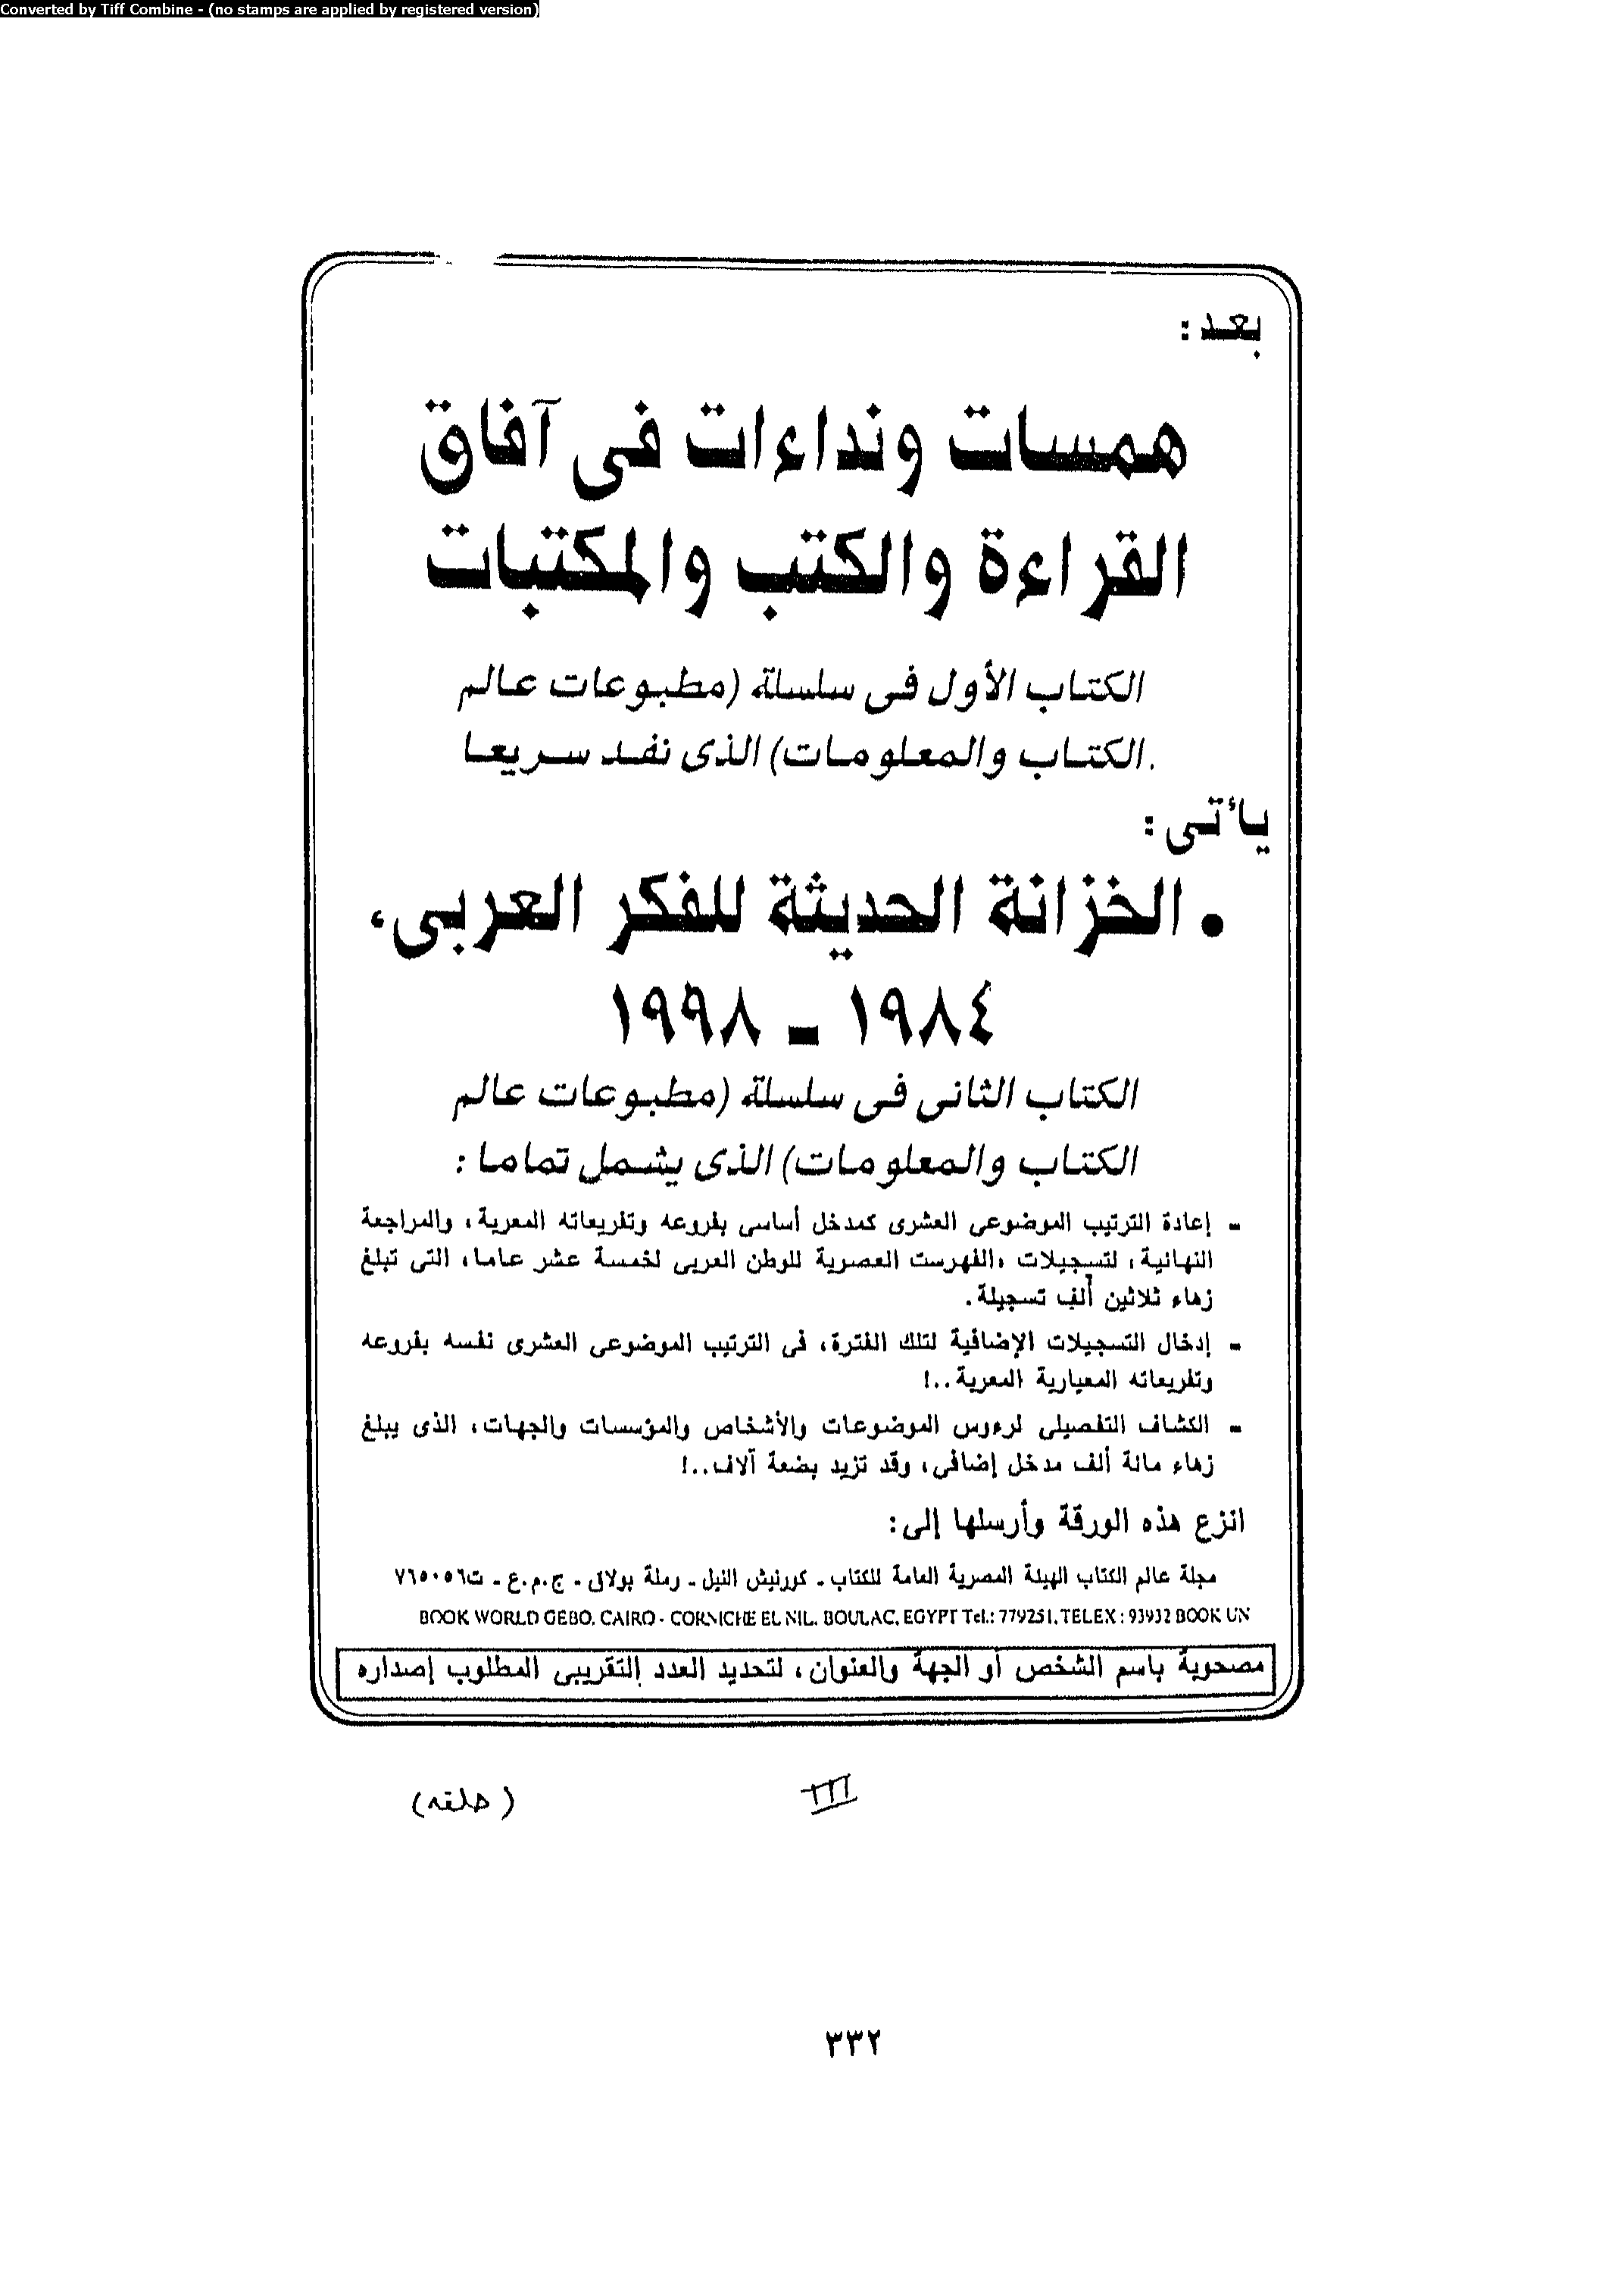 Converted by Tiff Combine - (no stamps are applied by registered version)
بعد :
همسات ونداءات فى آفاق
القراءة والكتب والمكتبات
الكتاب الأول فى سلسلة (مطبوعات عالم
الكتاب والمعلومات) الذى نفد سريعا
يأتى :
• الخزانة الحديثة للفكر العربى،
١٩٨٤ - ١٩٩٨
الكتاب الثانى فى سلسلة (مطبوعات عالم
الكتاب والمعلومات) الذى يشمل تماما :
- إعادة الترتيب الموضوعى العشرى كمدخل أساسى بفروعه وتفريعاته المعربة، والمراجعة
النهائية، لتسجيلات «الفهرست العصرية للوطن العربى لخمسة عشر عاما، التى تبلغ
زهاء ثلاثين ألف تسجيلة.
- إدخال التسجيلات الإضافية لتلك الفترة، فى الترتيب الموضوعى العشرى نفسه بفروعه
وتفريعاته المعيارية المعربة..!
- الكشاف التفصيلى لرءوس الموضوعات والأشخاص والمؤسسات والجهات، الذى يبلغ
زهاء مائة ألف مدخل إضافى، وقد تزيد بضعة آلاف..!
انزع هذه الورقة وأرسلها إلى:
مجلة عالم الكتاب الهيئة المصرية العامة للكتاب - كورنيش النيل - رملة بولاق - ج.م.ع - ت٧٦٥٠٥٦
BOOK WORLD GEBO, CAIRO - CORNICHE EL NIL, BOULAC, EGYPT Tel.: 779251, TELEX : 93932 BOOK UN
مصحوبة باسم الشخص أو الجهة والعنوان، لتحديد العدد التقريبى المطلوب إصداره
III
٣٣٢